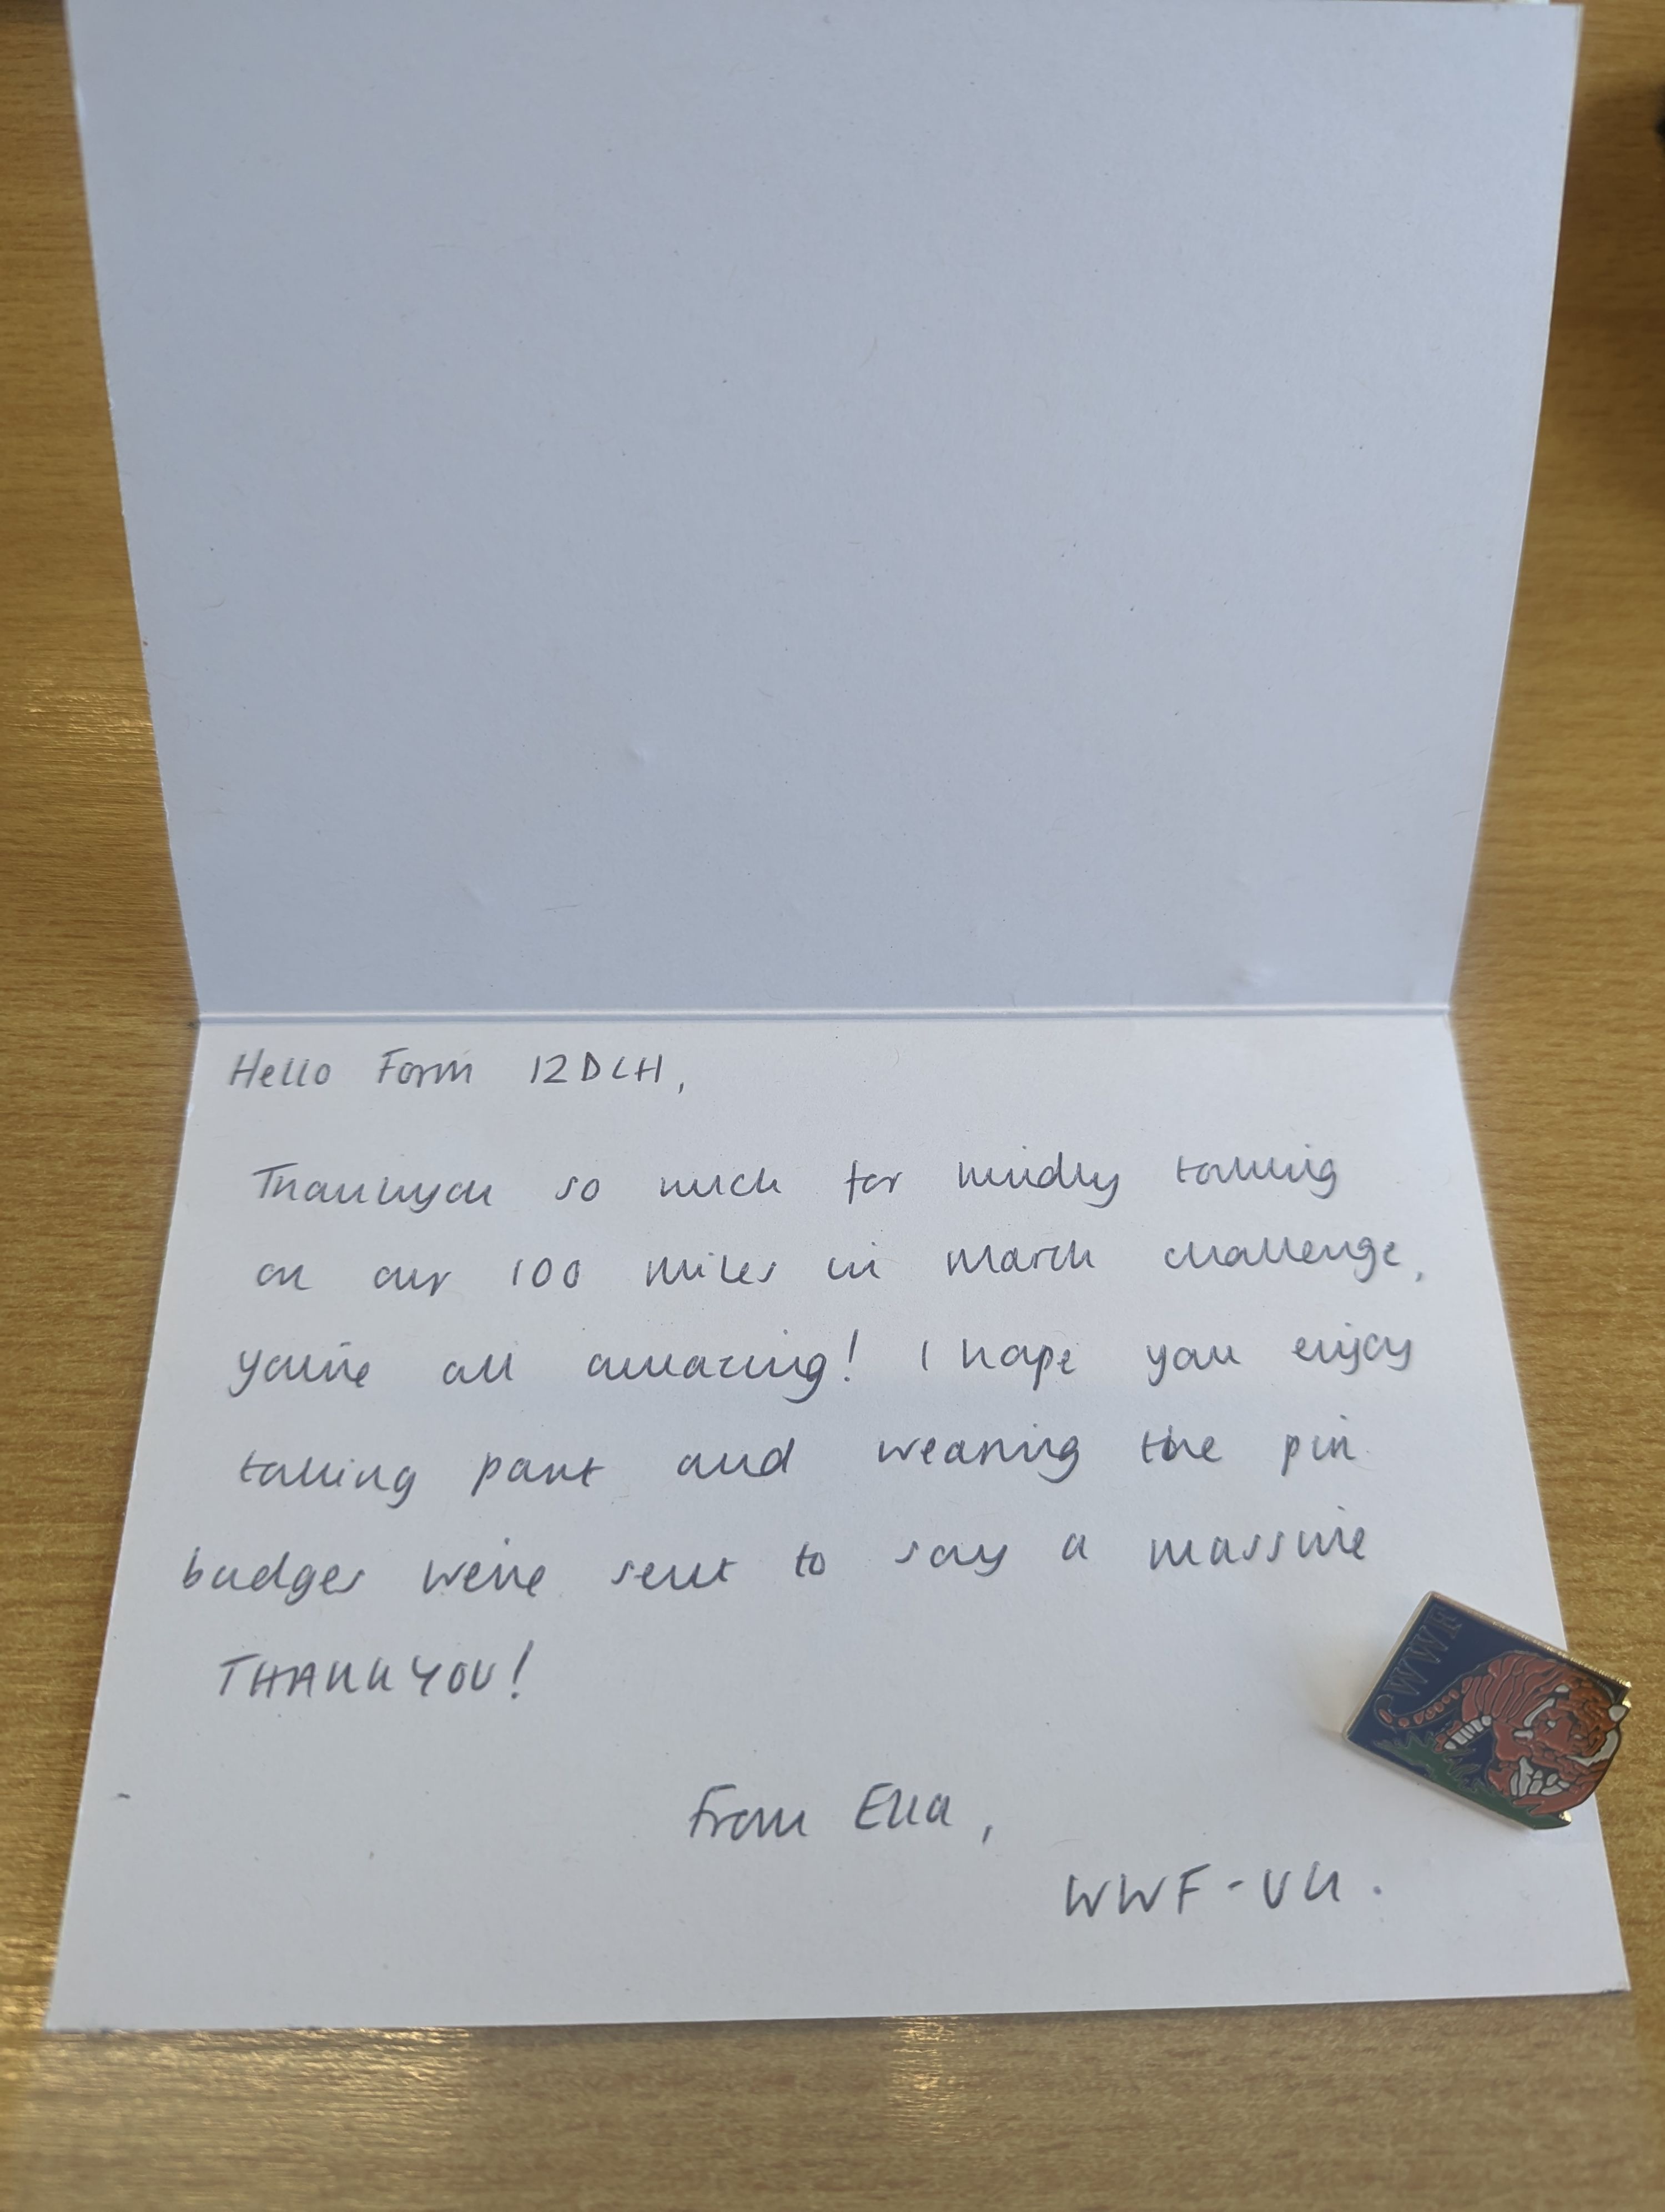 Hello Form 12DLH,
Thankyou so much for kindly taking
on our 100 miles in March challenge,
you're all amazing! I hope you enjoy
taking part and wearing the pin
badges we've sent to say a massive
THANKYOU!
From Ella,
WWF-UK.
WWF